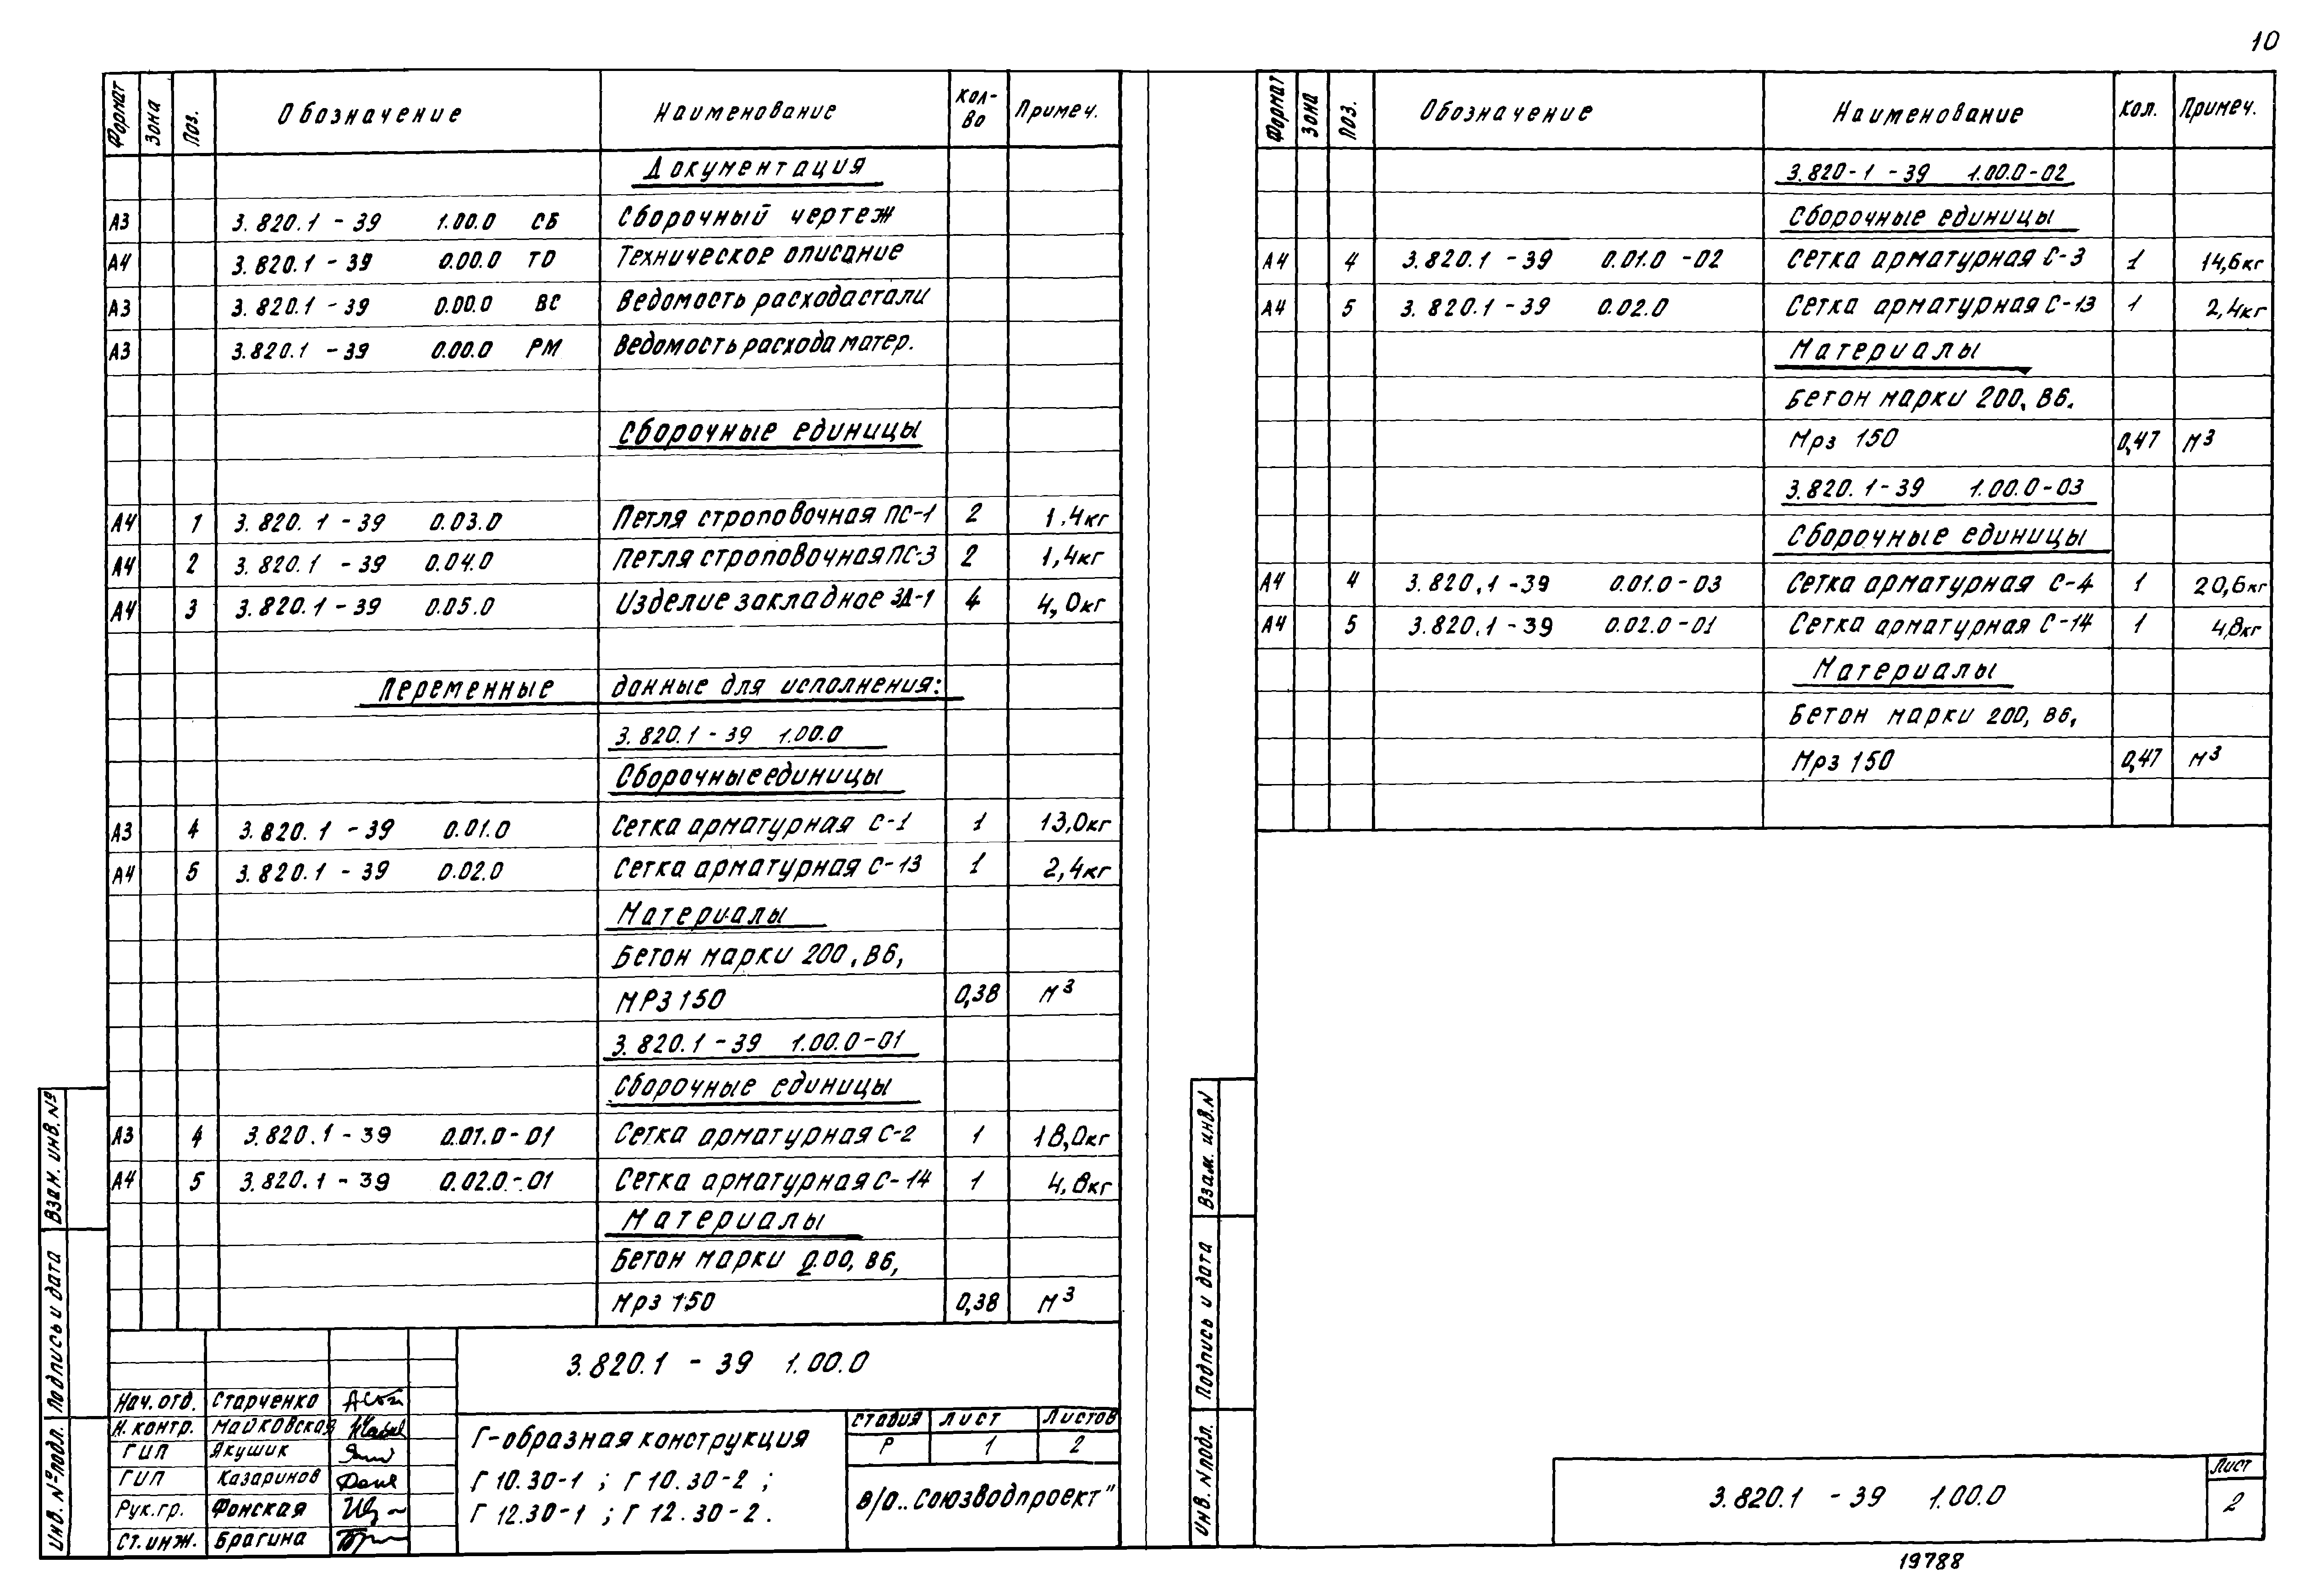 10
Формат Зона Поз. Обозначение Наименование Кол-во Примеч.
Документация
А3 3.820.1-39 1.00.0 СБ Сборочный чертеж
А4 3.820.1-39 0.00.0 ТО Техническое описание
А3 3.820.1-39 0.00.0 ВС Ведомость расхода стали
А3 3.820.1-39 0.00.0 РМ Ведомость расхода матер.
Сборочные единицы
А4 1 3.820.1-39 0.03.0 Петля строповочная ПС-1 2 1.4кг
А4 2 3.820.1-39 0.04.0 Петля строповочная ПС-3 2 1,4кг
А4 3 3.820.1-39 0.05.0 Изделие закладное ЗД-1 4 4,0кг
Переменные данные для исполнения:
3.820.1-39 1.00.0
Сборочные единицы
А3 4 3.820.1-39 0.01.0 Сетка арматурная С-1 1 13,0кг
А4 5 3.820.1-39 0.02.0 Сетка арматурная С-13 1 2,4кг
Материалы
Бетон марки 200, В6,
МРЗ 150 0,38 м³
3.820.1-39 1.00.0-01
Сборочные единицы
А3 4 3.820.1-39 0.01.0-01 Сетка арматурная С-2 1 18,0кг
А4 5 3.820.1-39 0.02.0-01 Сетка арматурная С-14 1 4,8кг
Материалы
Бетон марки 200, В6,
Мрз 150 0,38 м³
3.820.1-39 1.00.0
Нач.отд. Старченко
Н.контр. Майковская
ГИП Якушик
ГИП Казаринов
Рук.гр. Фонская
Ст.инж. Брагина
Г-образная конструкция
Г 10.30-1; Г 10.30-2;
Г 12.30-1; Г 12.30-2.
Стадия Лист Листов
Р 1 2
в/о „Союзводпроект"
Взам. инв. №
Подпись и дата
Инв. № подл.
Формат Зона Поз. Обозначение Наименование Кол. Примеч.
3.820-1-39 1.00.0-02
Сборочные единицы
А4 4 3.820.1-39 0.01.0-02 Сетка арматурная С-3 1 14,6кг
А4 5 3.820.1-39 0.02.0 Сетка арматурная С-13 1 2,4кг
Материалы
Бетон марки 200, В6.
Мрз 150 0,47 м³
3.820.1-39 1.00.0-03
Сборочные единицы
А4 4 3.820.1-39 0.01.0-03 Сетка арматурная С-4 1 20,6кг
А4 5 3.820.1-39 0.02.0-01 Сетка арматурная С-14 1 4,8кг
Материалы
Бетон марки 200, В6,
Мрз 150 0,47 м³
Взам. инв. N
Подпись и дата
Инв. N подл.
3.820.1-39 1.00.0
Лист
2
19788